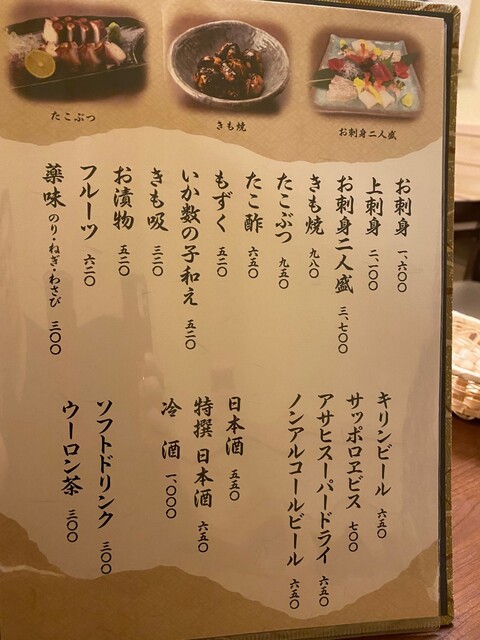 たこぶつ
きも焼
お刺身二人盛
お刺身 一、六〇〇
上刺身 二、一〇〇
お刺身二人盛 三、七〇〇
きも焼 九八〇
たこぶつ 九五〇
たこ酢 六五〇
もずく 五二〇
いか数の子和え 五二〇
きも吸 三二〇
お漬物 五二〇
フルーツ 六二〇
薬味 のり・ねぎ・わさび 三〇〇
キリンビール 六五〇
サッポロヱビス 七〇〇
アサヒスーパードライ 六五〇
ノンアルコールビール 六五〇
日本酒 五五〇
特撰 日本酒 六五〇
冷 酒 一、〇〇〇
ソフトドリンク 三〇〇
ウーロン茶 三〇〇